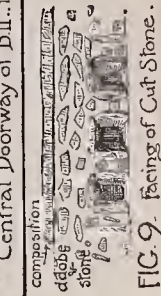 Central Doorway of B.II.
composition
adobe
stone
FIG 9. Facing of Cut Stone.